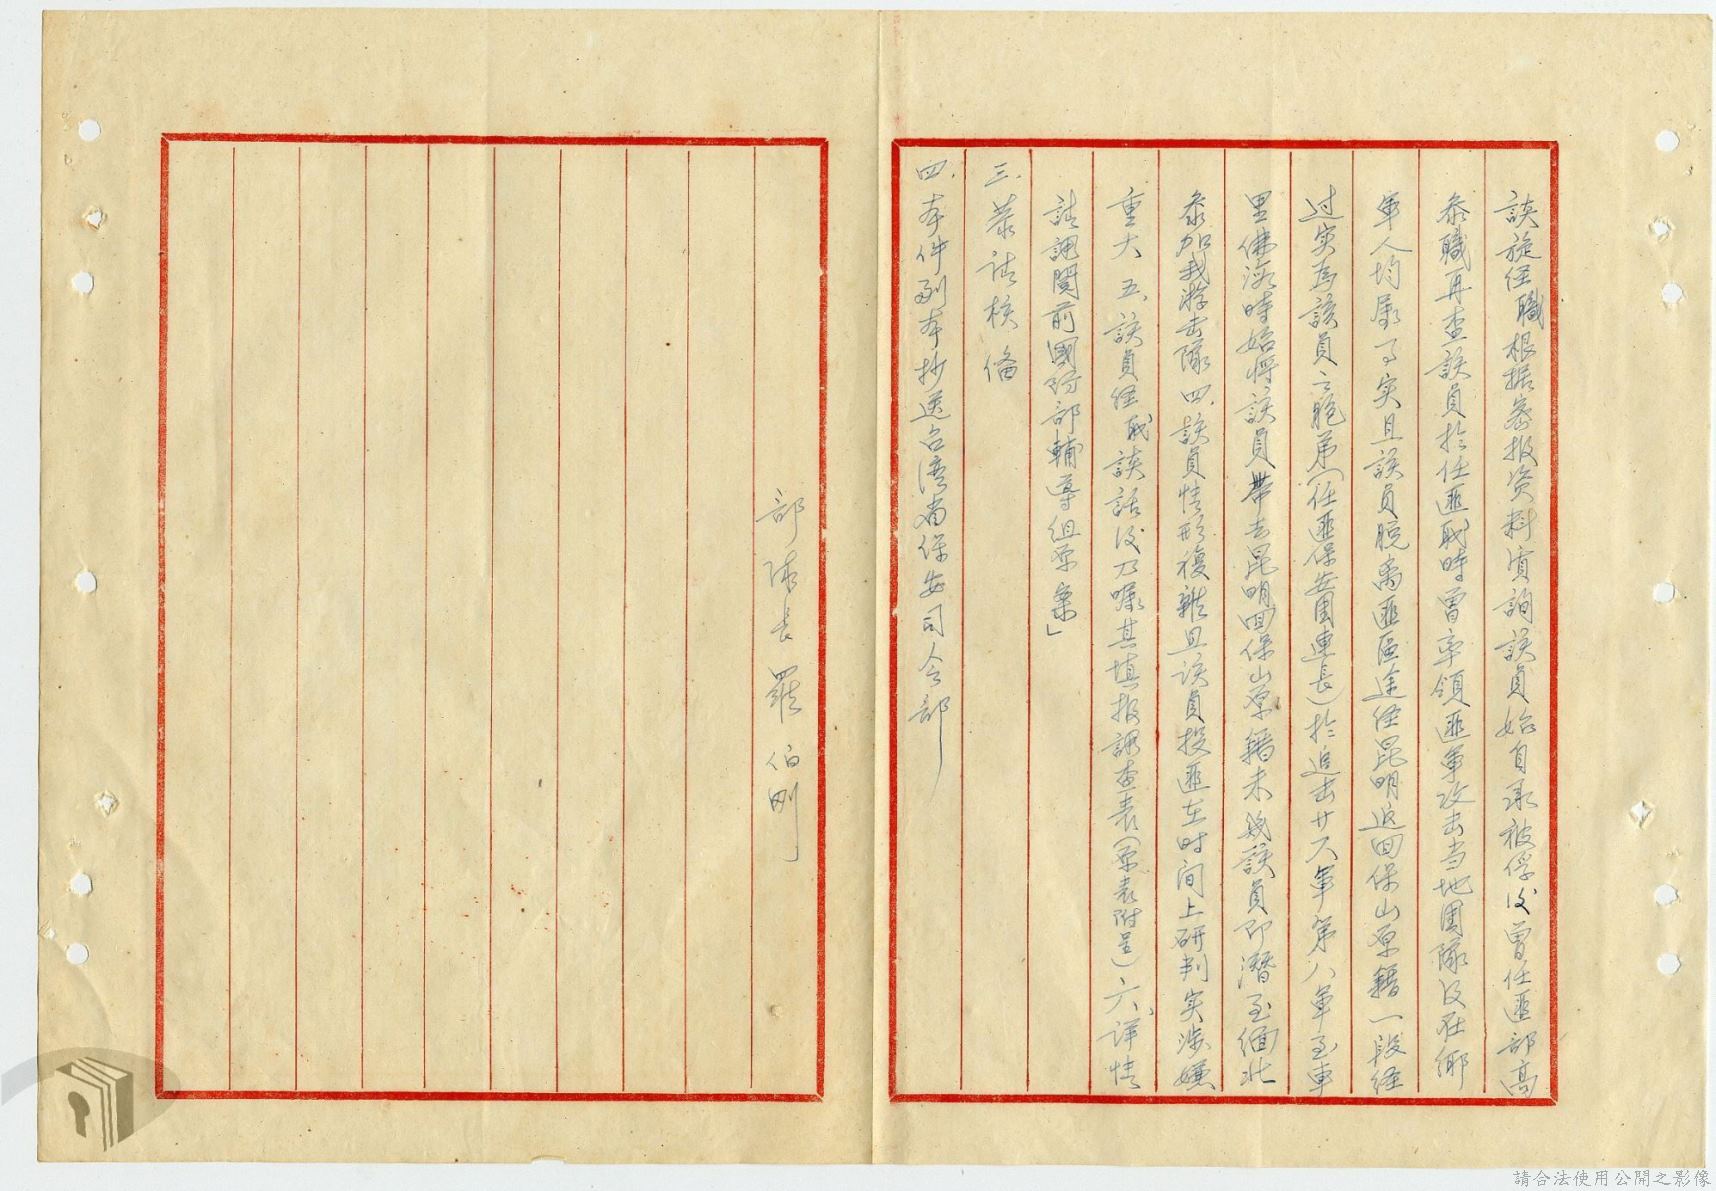 談旋經職根据密报资料質詢該員始自承被俘后曾任匪部高
叅職再查該員於任匪職時曾率領匪軍攻击当地團隊及在鄉
軍人均属事实且該員脫离匪區途经昆明返回保山原籍一段经
过实為該員之胞弟(任匪保安團連長)於追击廿六軍第八軍至車
里佛海時始将該員带去昆明回保山原籍未幾該員即潛至緬北
叅加我游击隊四、該員情形複雜且該員投匪在时间上研判实涉嫌
重大五、該員经職談話後乃囑其填报調查表(原表附呈)六、详情
請調閱前國防部輔導组原案」
三、恭请核俻
四、本件副本抄送台湾省保安司令部
部隊長羅伯剛
請合法使用公開之影像